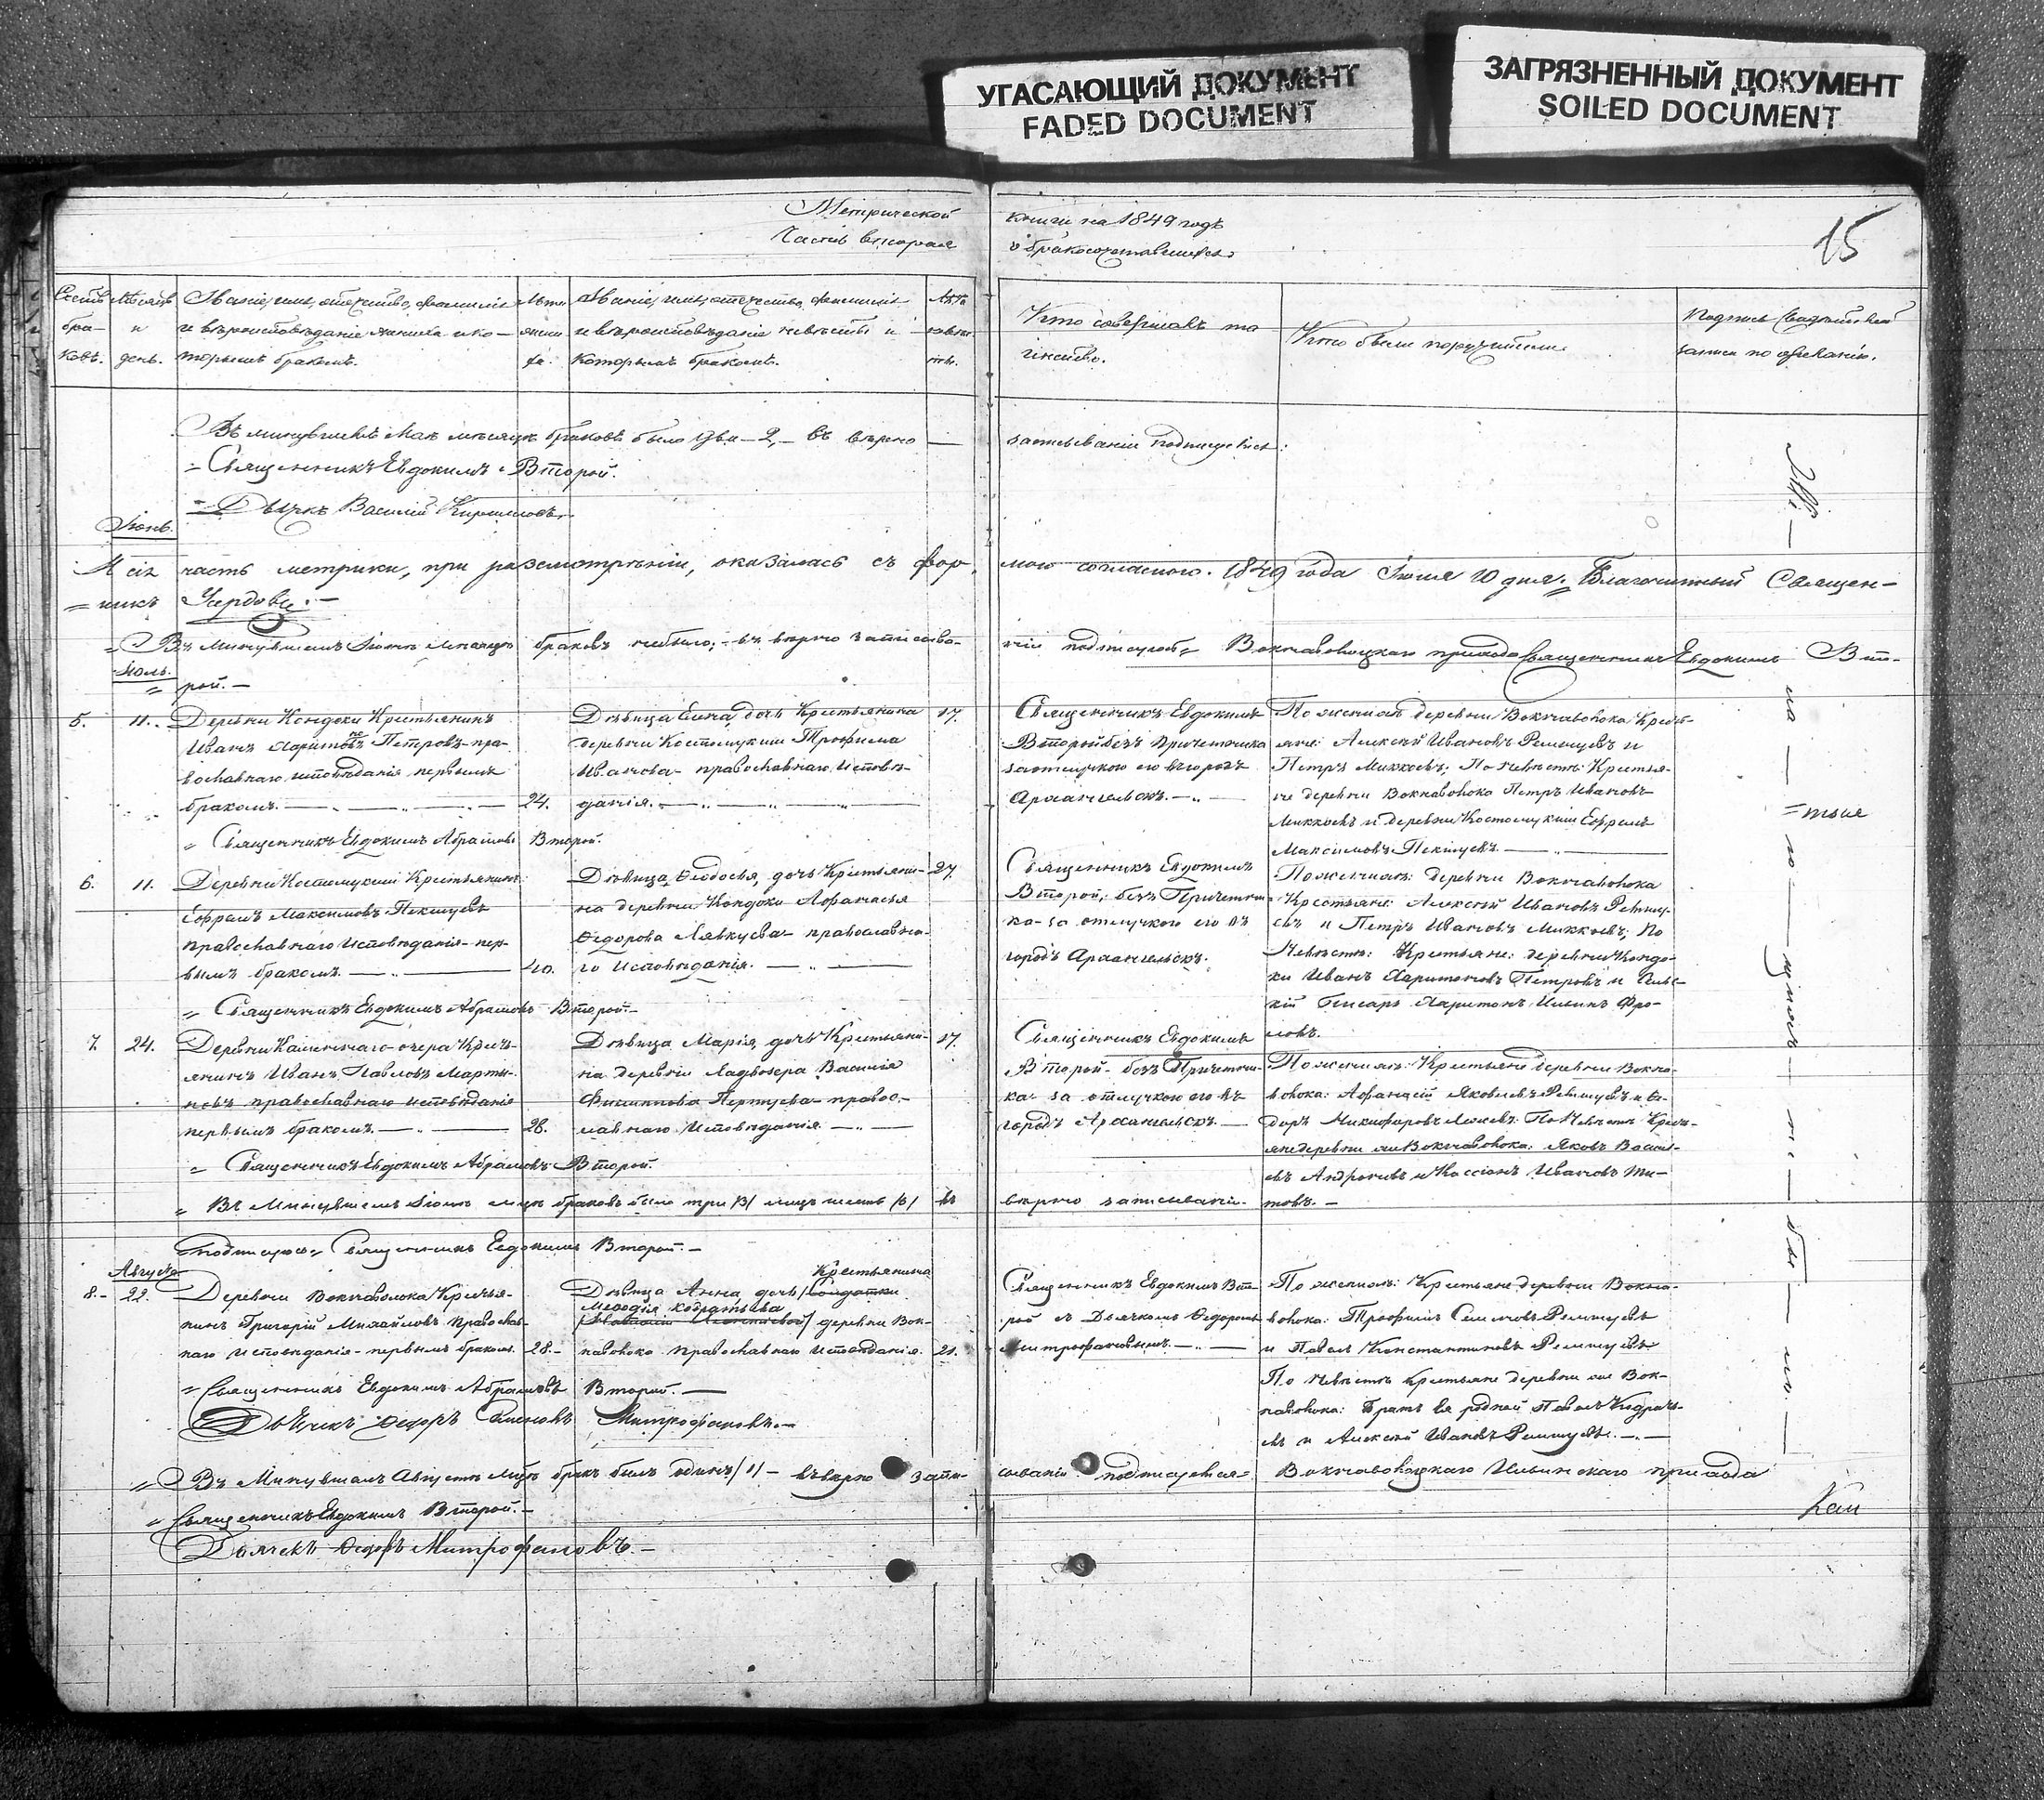 УГАСАЮЩИЙ ДОКУМЕНТ
FADED DOCUMENT
ЗАГРЯЗНЕННЫЙ ДОКУМЕНТ
SOILED DOCUMENT
Метрической
Часть вторая
книги на 1849 годъ
о бракосочетавшихся
15
Счетъ бра-ковъ.
Мѣсяцъ и день.
Званіе, имя, отечество, фамилія
и вѣроисповѣданіе жениха и ко-
торымъ бракомъ.
Званіе, имя, отечество, фамилія
и вѣроисповѣданіе невѣсты и
которымъ бракомъ.
Лѣта
невѣс-
ты.
Кто совершалъ та
инство.
Кто были поручители
Подпись свидѣтелей
записи по желанію.
Въ минувшемъ Маѣ мѣсяцѣ браковъ было два – 2, – въ вѣрно
записываніи подписуются:
Священникъ Евдокимъ Второй.
Дьячекъ Василій Кириловъ
Іюнь.
И сія часть метрики, при разсмотрѣніи, оказалась съ фор
мою согласною. 1849 года Іюня 10 дня. Благочинный Священ-
никъ
Въ Минувшемъ Іюнѣ мѣсяцѣ браковъ небыло; въ вѣрно записыва-
ніи подписуюсь Вокнаволоцкаго прихода Священникъ Евдокимъ Вто-
рой. –
Іюль.
5. 11. Деревни Кондоки Крестьянинъ
Иванъ Харитоновъ Петровъ пра-
вославнаго исповѣданія первымъ
бракомъ. 24.
Дѣвица Елена, дочь Крестьянина 17.
деревни Костомукши Трофима
Иванова православнаго исповѣ-
данія.
Священникъ Евдокимъ
Второй безъ Причетника
за отлучкою его въ городъ
Архангельскъ.
По женихѣ деревни Вокнаволока Кресть-
яне: Алексѣй Ивановъ Ремшуевъ и
Петръ Микковъ; По Невѣстѣ Крестья-
не деревни Вокнаволока Петръ Ивановъ
Микковъ и деревни Костомукши Ефремъ
Максимовъ Пекшуевъ.
Священникъ Евдокимъ Абрамовъ Второй.
6. 11. Деревни Костомукши Крестьянинъ
Ефремъ Максимовъ Пекшуевъ
православнаго исповѣданія – пер-
вымъ бракомъ. 40.
Дѣвица, Ѳеодосья, дочь Крестьяни- 27.
на деревни Кондоки Афанасья
Ѳедорова Лявкуева – православна-
го исповѣданія.
Священникъ Евдокимъ
Второй; безъ Причетни-
ка за отлучкою его въ
городъ Архангельскъ.
По женихѣ: деревни Вокнаволока
Крестьяне: Алексѣй Ивановъ Ремшу-
евъ и Петръ Ивановъ Микковъ; По
Невѣстѣ: Крестьяне: деревни Кондо-
ки Иванъ Харитоновъ Петровъ и Сель-
кій Писарь Харитонъ Ильинъ Фро-
ловъ.
Священникъ Евдокимъ Абрамовъ Второй. –
7. 24. Деревни Каменнаго озера Кресть-
янинъ Иванъ Павловъ Марты-
новъ православнаго исповѣданія
первымъ бракомъ. 28.
Дѣвица Марія, дочь Крестьяни- 17.
на деревни Ладвозера Василія
Филиппова Лертуева – правос-
лавнаго исповѣданія
Священникъ Евдокимъ
Второй – безъ Причетни-
ка за отлучкою его въ
городъ Архангельскъ.
По женихѣ: Крестьяне деревни Вокна-
волока: Афанасій Яковлевъ Ремшуевъ и Ѳе-
доръ Никифоровъ По Невѣстѣ Кресть-
яне деревни Вокнаволока: Яковъ Василь-
евъ Андроновъ и Кассіонъ Ивановъ Ти-
товъ. –
Священникъ Евдокимъ Абрамовъ Второй.
Въ Минувшемъ Іюлѣ мцѣ браковъ было три /3/ лицъ шесть /6/ въ
вѣрно записываніи
подписуюсь Священникъ Евдокимъ Второй. –
Августъ
8. 22. Деревни Вокнаволока Крестья-
нинъ Григорій Михайловъ Православ-
наго исповѣданія – первымъ бракомъ. 28. –
Крестьянина
Дѣвица Анна дочь солдатки
деревни Вок-
наволока православнаго исповѣданія. 21.
Священникъ Евдокимъ Вто-
рой съ Дьячкомъ Ѳедоромъ
Митрофановымъ.
По женихѣ: Крестьяне деревни Вокна-
волока: Трофимъ Семеновъ Ремшуевъ
и Павелъ Константиновъ Ремшуевъ
По Невѣстѣ Крестьяне деревни Вок-
наволока: Братъ ея родной Павелъ Кидрать-
евъ и Алексѣй Ивановъ Ремшуевъ.
Священникъ Евдокимъ Абрамовъ Второй. –
Дьячекъ Ѳедоръ Симеоновъ Митрофановъ. –
Въ Минувшемъ Августѣ Мцѣ бракъ былъ одинъ /1/ – въ вѣрно запи-
сываніи подписуются Вокнаволоцкаго Ильинскаго прихода
Священникъ Евдокимъ Второй. –
Дьячекъ Ѳедоръ Митрофановъ. –